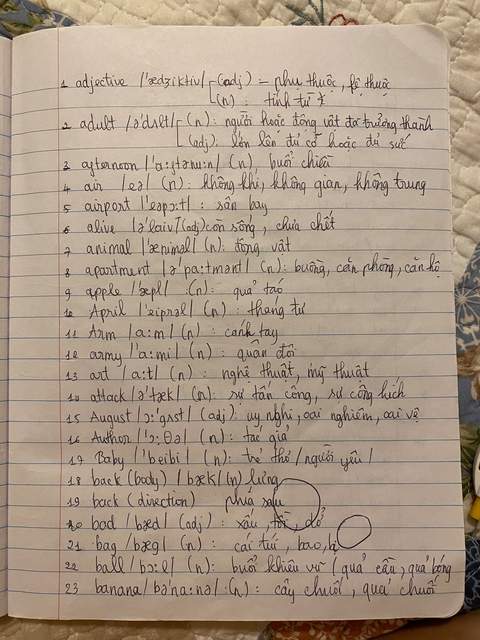 1 adjective /'ædʒiktiv/ (adj) – phụ thuộc, lệ thuộc
(n) : tính từ
2 adult /ə'dʌlt/ (n): người hoặc động vật đã trưởng thành
(adj). lớn lên đủ cỡ hoặc đủ sức
3 afternoon /'ɑ:ftənu:n/ (n) buổi chiều
4 air /eə/ (n): không khí, không gian, không trung
5 airport /'eəpɔ:t/ : sân bay
6 alive /ə'laiv/ (adj) còn sống, chưa chết
7 animal /'æniməl/ (n): động vật
8 apartment /ə'pa:tmənt/ (n): buồng, căn phòng, căn hộ
9 apple /æpl/ (n): quả táo
10 April /'eiprəl/ (n) : tháng tư
11 Arm /a:m/ (n) : cánh tay
12 army /'a:mi/ (n) : quân đội
13 art /a:t/ (n) : nghệ thuật, mỹ thuật
14 attack /ə'tæk/ (n): sự tấn công, sự công kích
15 August /ɔ:'gʌst/ (adj): uy nghi, oai nghiêm, oai vệ
16 Author /'ɔ:θə/ (n) : tác giả
17 Baby /'beibi/ (n): trẻ thơ/người yêu/
18 back (body) /bæk/ (n) lưng
19 back (direction) phía sau
20 bad /bæd/ (adj) : xấu tồi, dở
21 bag /bæg/ (n) : cái túi, bao, bị
22 ball /bɔ:l/ (n): buổi khiêu vũ (quả cầu, quả bóng
23 banana /bə'na:nə/ (n): cây chuối, quả chuối